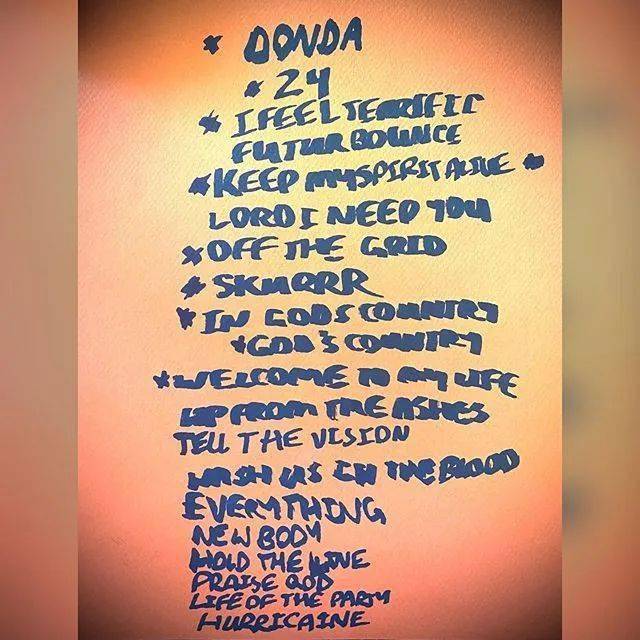 * DONDA
* 24
* I FEEL TERRIFIC
FUTUR BOUNCE
*KEEP MY SPIRIT ALIVE *
LORD I NEED YOU
*OFF THE GRID
* SKURRR
*IN GODS COUNTRY
*GOD'S COUNTRY
*WELCOME TO MY LIFE
UP FROM THE ASHES
TELL THE VISION
WASH US IN THE BLOOD
EVERYTHING
NEW BODY
HOLD THE LINE
PRAISE GOD
LIFE OF THE PARTY
HURRICAINE